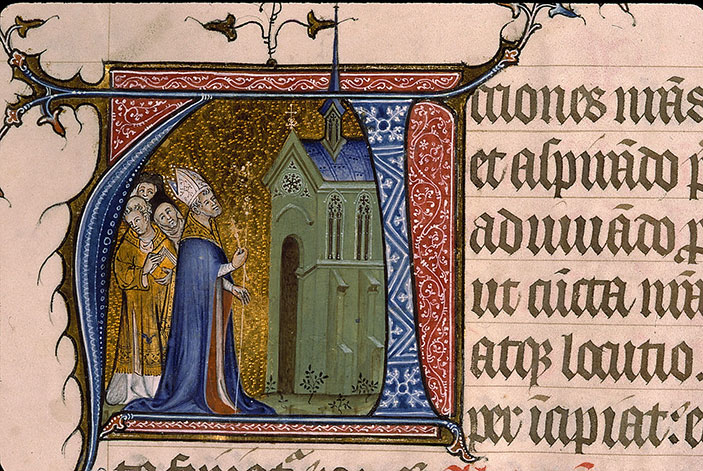 Acciones nr̃as
et aspirãdo p
adiuuãdo p
ut cũcta nr̃a
atqꝫ locutio.
per ĩcipiat: e